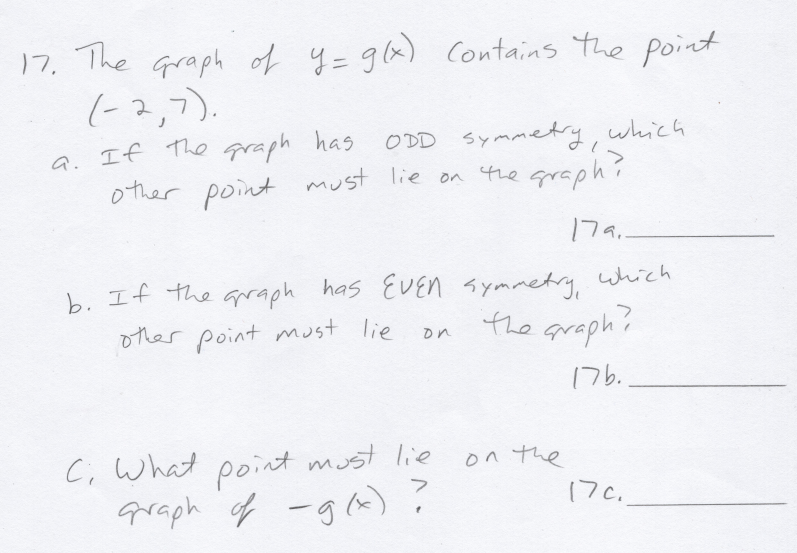 17. The graph of y = g(x) contains the point
(-2,7).
a. If the graph has ODD symmetry, which
other point must lie on the graph?
17a. ________
b. If the graph has EVEN symmetry, which
other point must lie on the graph?
17b. ________
C. What point must lie on the
graph of -g(x)?
17c. ________